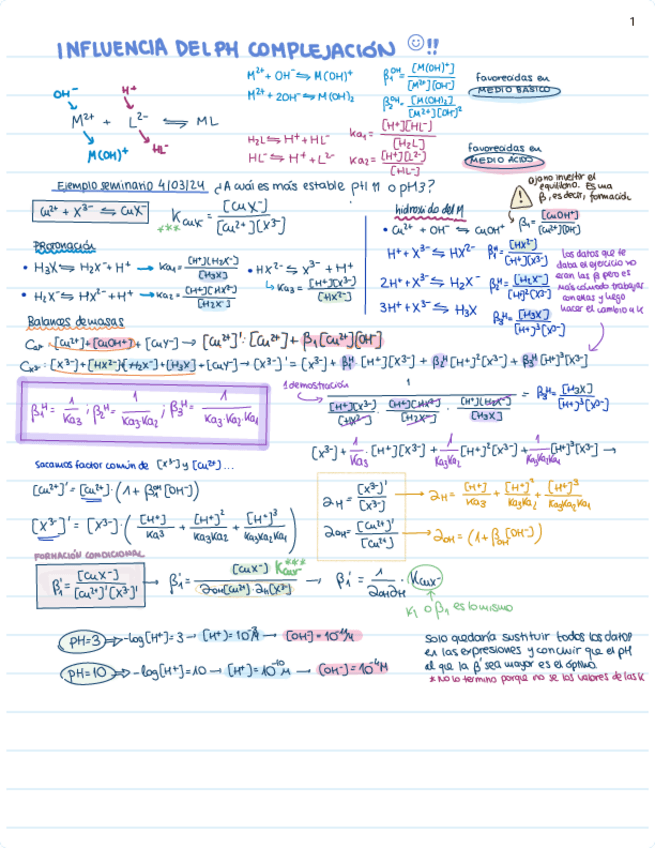 1
INFLUENCIA DEL PH COMPLEJACIÓN ☺!!
OH⁻ H⁺
M²⁺ + L²⁻ ⇌ ML
M(OH)⁺ HL⁻
M²⁺ + OH⁻ ⇌ M(OH)⁺ β₁ᴼᴴ = [M(OH)⁺]/[M²⁺][OH⁻]
M²⁺ + 2OH⁻ ⇌ M(OH)₂ β₂ᴼᴴ = [M(OH)₂]/[M²⁺][OH]²
favorecidas en
MEDIO BÁSICO
H₂L ⇌ H⁺ + HL⁻ Ka₁ = [H⁺][HL⁻]/[H₂L]
HL⁻ ⇌ H⁺ + L²⁻ Ka₂ = [H⁺][L²⁻]/[HL⁻]
favorecidas en
MEDIO ÁCIDO
Ejemplo seminario 4/03/24 ¿A cuál es más estable pH 11 o pH3?
Cu²⁺ + X³⁻ ⇌ CuX⁻
*** K CuX⁻ = [CuX⁻]/[Cu²⁺][X³⁻]
hidróxido del M
• Cu²⁺ + OH⁻ ⇌ CuOH⁺ β₁ = [CuOH⁺]/[Cu²⁺][OH⁻]
Ojo no invertir el
equilibrio. Es una
β, es decir, formación
PROTONACIÓN
• H₃X ⇌ H₂X⁻ + H⁺ → Ka₁ = [H⁺][H₂X⁻]/[H₃X]
• H₂X⁻ ⇌ HX²⁻ + H⁺ → Ka₂ = [H⁺][HX²⁻]/[H₂X⁻]
• HX²⁻ ⇌ X³⁻ + H⁺
↳ Ka₃ = [H⁺][X³⁻]/[HX²⁻]
H⁺ + X³⁻ ⇌ HX²⁻ β₁ᴴ = [HX²⁻]/[H⁺][X³⁻]
2H⁺ + X³⁻ ⇌ H₂X⁻ β₂ᴴ = [H₂X⁻]/[H⁺]²[X³⁻]
3H⁺ + X³⁻ ⇌ H₃X β₃ᴴ = [H₃X]/[H⁺]³[X³⁻]
Los datos que te
daba el ejercicio no
eran las β pero es
más cómodo trabajar
con ellas y luego
hacer el cambio a K
Balances de masas
[Cu²⁺]+[CuOH⁺]+[CuY⁻] → [Cu²⁺]' : [Cu²⁺] + β₁[Cu²⁺][OH⁻]
[X³⁻]+[HX²⁻]+[H₂X⁻]+[H₃X]+[CuY⁻] → [X³⁻]' = [X³⁻] + β₁ᴴ [H⁺][X³⁻] + β₂ᴴ [H⁺]²[X³⁻] + β₃ᴴ [H⁺]³[X³⁻]
β₁ᴴ = 1/Ka₃ ; β₂ᴴ = 1/Ka₃·Ka₂ ; β₃ᴴ = 1/Ka₃·Ka₂·Ka₁
1 demostración
1/([H⁺][X³⁻]/[HX²⁻] · [H⁺][HX²⁻]/[H₂X⁻] · [H⁺][H₂X⁻]/[H₃X]) = β₃ᴴ = [H₃X]/[H⁺]³[X³⁻]
[X³⁻] + 1/Ka₃ · [H⁺][X³⁻] + 1/Ka₃Ka₂ [H⁺]²[X³⁻] + 1/Ka₃Ka₂Ka₁ [H⁺]³[X³⁻] →
Sacamos factor común de [X³⁻] y [Cu²⁺]...
[Cu²⁺]' = [Cu²⁺] · (1 + β₁ᴼᴴ [OH⁻])
[X³⁻]' = [X³⁻] · ([H⁺]/Ka³ + [H⁺]²/Ka₃Ka₂ + [H⁺]³/Ka₃Ka₂Ka₁)
∂H = [X³⁻]'/[X³⁻] → ∂H = [H⁺]/Ka₃ + [H⁺]²/Ka₃Ka₂ + [H⁺]³/Ka₃Ka₂Ka₁
∂OH = [Cu²⁺]'/[Cu²⁺] → ∂OH = (1 + βOH [OH⁻])
FORMACIÓN CONDICIONAL
β₁' = [CuX⁻]/[Cu²⁺]'[X³⁻]' → β₁' = [CuX⁻] K CuX⁻ ***/∂OH[Cu²⁺]·∂H[X³⁻] → β₁' = 1/∂OH∂H · K CuX⁻
K₁ o β₁ es lo mismo
pH=3 ⇒ -log[H⁺] = 3 → [H⁺] = 10⁻³M → [OH⁻] = 10⁻¹¹M
pH=10 ⇒ -log[H⁺] = 10 → [H⁺] = 10⁻¹⁰M → [OH⁻] = 10⁻⁴M
Solo quedaría sustituir todos los datos
en las expresiones y concluir que el pH
al que la β' sea mayor es el óptimo.
*No lo termino porque no se los valores de las K